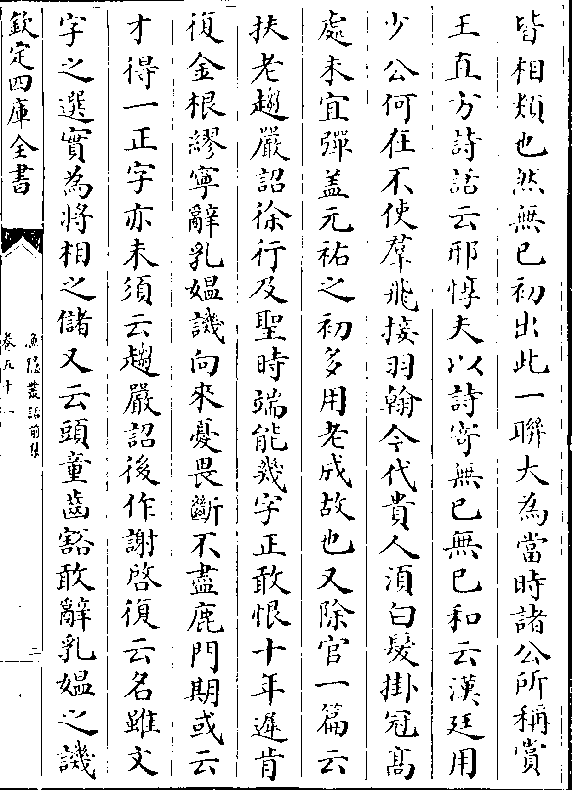 皆相類也然無已初出此一聯大為當時諸公所稱賞
王直方詩話云邢惇夫以詩寄無已無已和云漢廷用
少公何在不使羣飛接羽翰今代貴人須白髮掛冠髙
處未宜彈盖元祐之初多用老成故也又除官一篇云
扶老趨嚴詔徐行及聖時端能幾字正敢恨十年遲肯
復金根繆寧辭乳媪譏向來憂畏斷不盡鹿門期或云
才得一正字亦未須云趨嚴詔後作謝啓復云名雖文
字之選實為將相之儲又云頭童齒豁敢辭乳媪之譏
欽定四庫全書
漁隱叢話前集
卷五十一
二